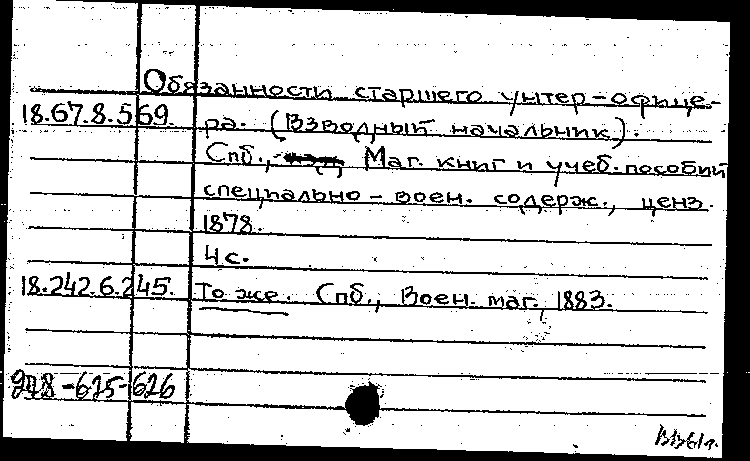 Обязанности старшего унтер-офице-
18.67.8.569. ра. (Взводный начальник).
Спб., Маг. книг и учеб. пособий
специально-воен. содерж., ценз.
1878.
4 с.
18.242.6.245. То же. Спб., Воен. маг., 1883.
-625-626